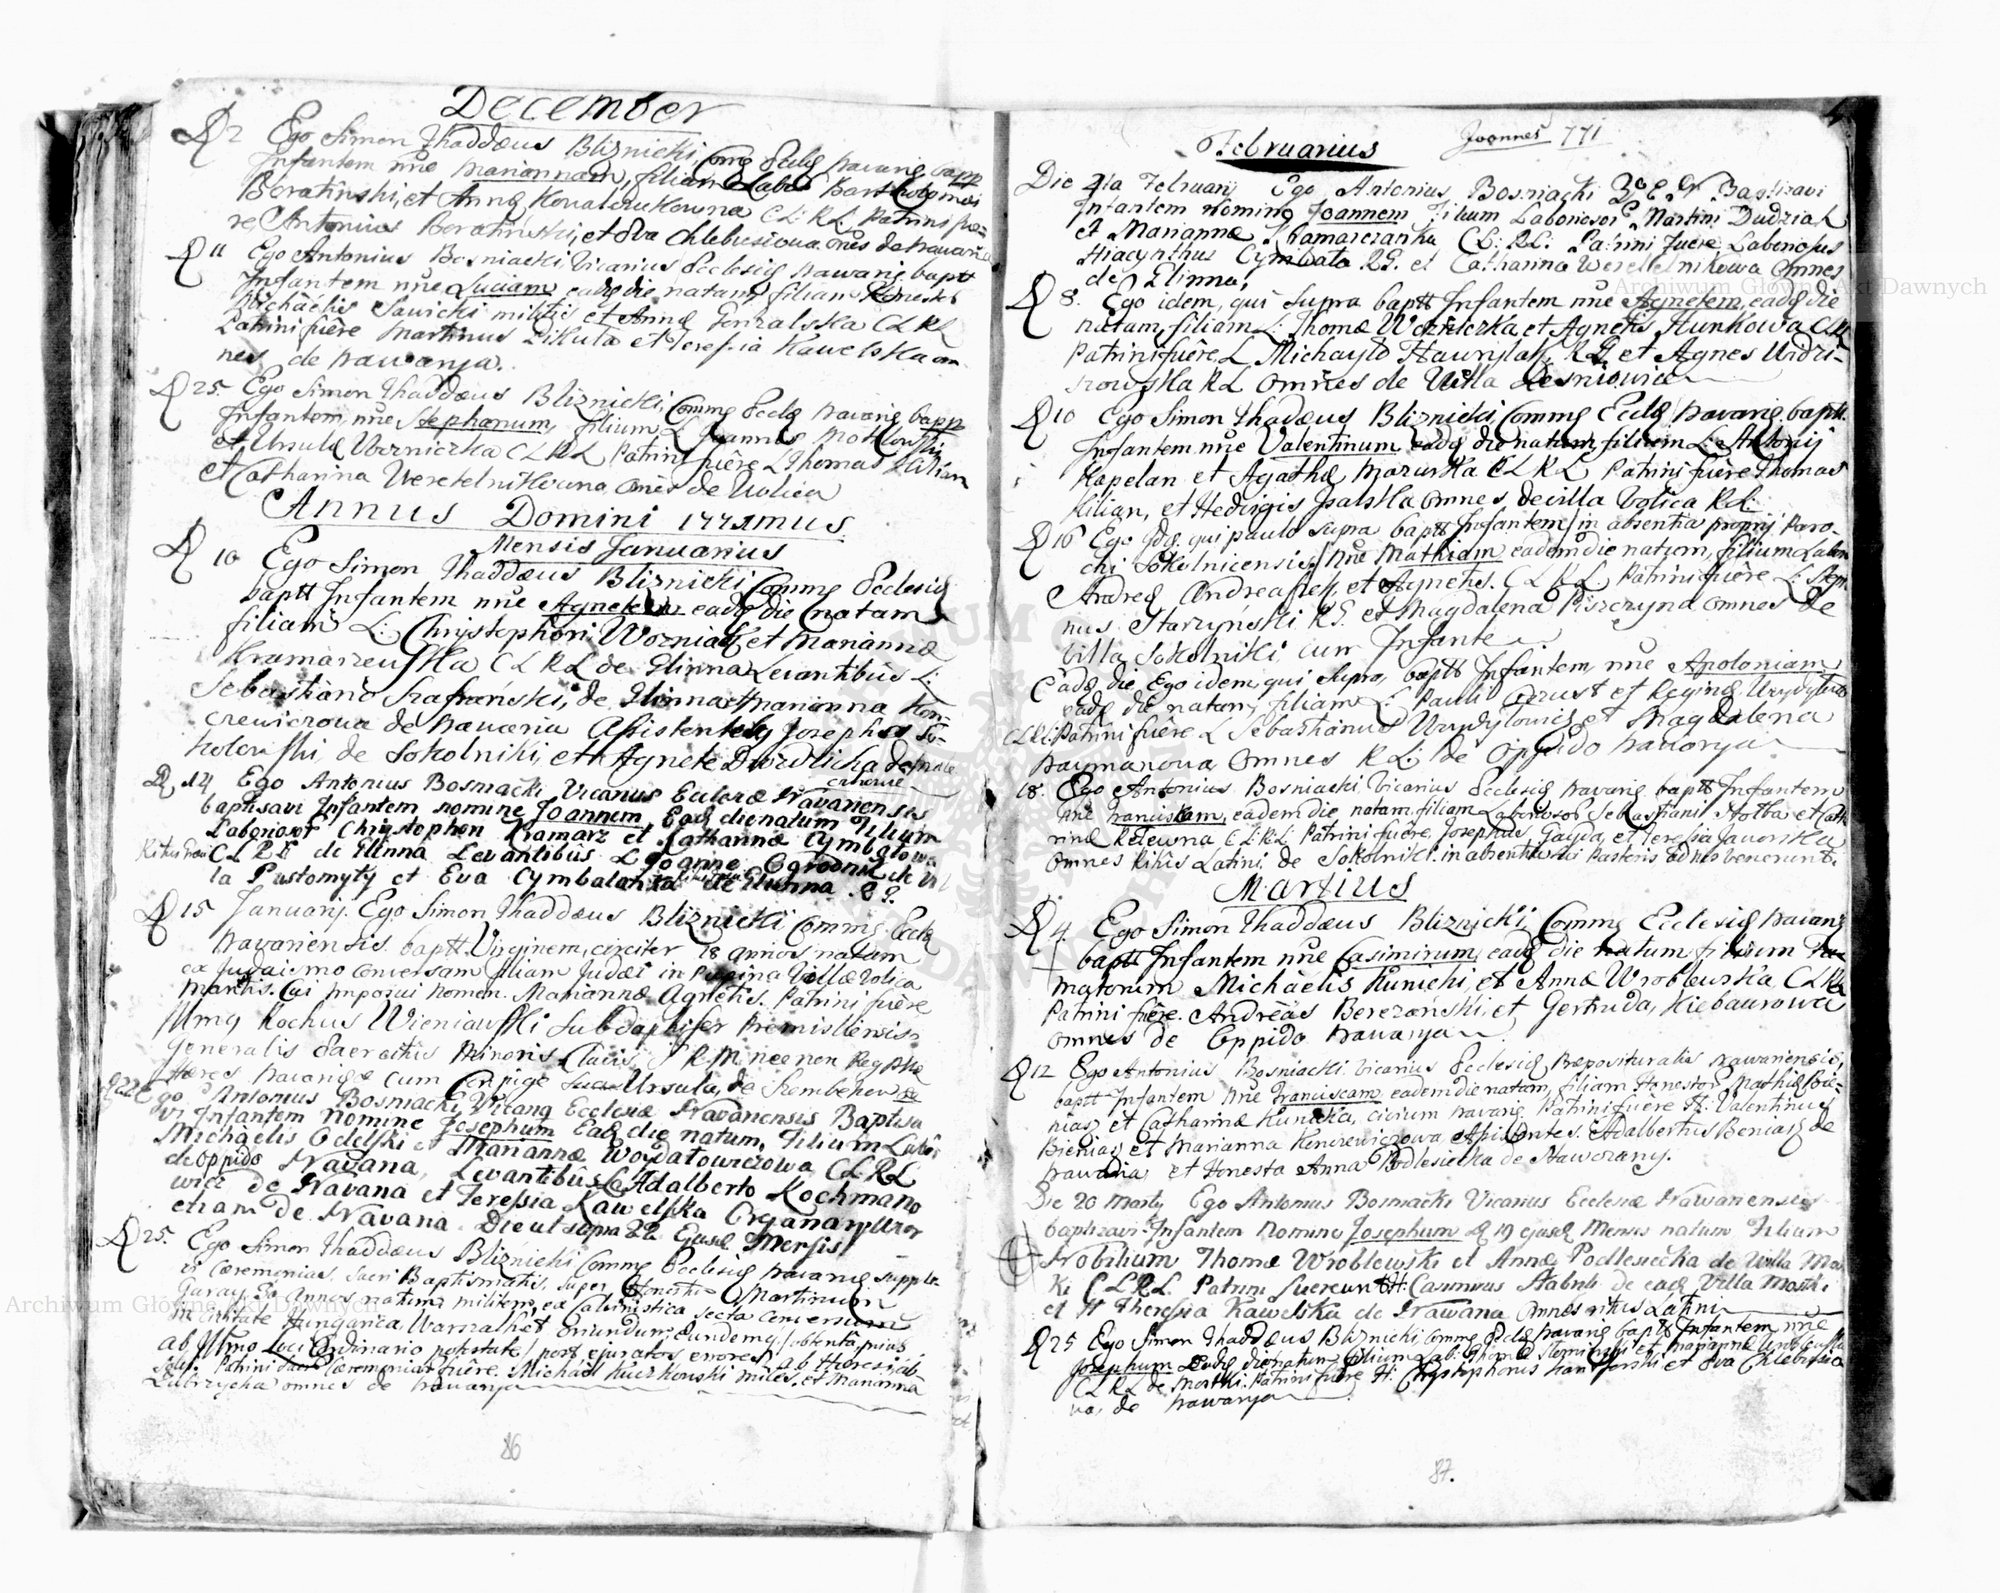 December
D 2 Ego Simon Thaddæus Bliznicki, Comm9 Eccl9 Navarię bapp
Infantem nn̄e Mariannam, filiam Labor Bartholomæi
Beratinski, et Annę Kovalczukowna CL: RL Patrini fue-
re Antonius Beratinski, et Eva Chlebusiowa om̄es de Navaria
D 11 Ego Antonius Bosniacki Vicarius Ecclesię Navarię baptt
Infantem nn̄e Luciam eadę die natam, filiam Honesti
Michaelis Sawicki militis et Annæ Goralska CL RL
Patrini fuêre Martinus Zikuta et Teressia Kawelska om
nes de Nawarya.
D 25. Ego Simon Thaddæus Bliznicki, Comm9 Eccl9 Navarię bapp
Infantem, nn̄e Stephanum, filium L Joannes Moklowski
et Ursulę Wozniczka CL RL Patrini fuêre L Thomas Kilian
et Catharina Weretelnikowna om̄es de Wolica
Annus Domini 1771mus
Mensis Januarius
D 10 Ego Simon Thaddæus Bliznicki Comm9 Ecclesię
baptt Infantem nn̄e Agnetem eadę die natam
filiam L: Christophori Wozniak et Mariannæ
Kramarzewska CL RL de Glinna Levantibûs L:
Sebastiano Szafranski, de Glinna et Marianna Kon-
crewicrowa de Navaria Assistentibus Josepho So-
kolowski, de Sokolniki, et Agnete Dwidlicha de
D 14 Ego Antonius Bosniacki Vicarius Ecclesiæ Navariensis
baptisavi Infantem nomine Joannem, Eadę die natum Filium
Laboriosor Chrystophori Kramarz et Catharinæ Cymbalowa
CL RL de Glinna Levantibûs L Joanne Ogrodnik de vil
la Pustomyty et Eva Cymbalanka de Glinna R G.
D 15 Januarij. Ego Simon Thaddæus Bliznicki Comm9 Eccle
Navariensis baptt Virginem, circiter 18 annos natam
ex Judaismo conversam filiam Judæi in Villæ Wolica
Martis. Cui imposui nomen. Mariannæ Agnetis. Patrini fuêre
Illm9 Rochus Wieniawski Subdapifer Premisliensis
Generalis Exercitûs Minoris S R M necnon Reg Pol
hæres Navarię cum Conjuge sua Ursula de Rembekow
D 22 Ego Antonius Bosniacki, Vicarius Ecclesiæ Navariensis Baptisa
vi Infantem Nomine Josephum Eadę die natum, Filium Labor
Michaelis Odelski et Mariannæ Woydatowiczowa CL RL
de Oppido Navaria, Levantibûs L Adalberto Kochmano
wicz de Navaria et Teressia Kawelska Organarzewa
etiam de Navaria. Die ut supra 22. Ejusd Mensis
D 25. Ego Simon Thaddæus Bliznicki Comm9 Ecclesię Navarię supple
vi Cæremonias, Sacri Baptismatis, super Honestu Martinum
Guray 30 annos natum militem, ex Calvinistica secta conversum
in Civitate Hungarica oriundum, eundemq. obtentâ prius
ab Illmo Loci Ordinario potestate, post ejuratos errores, ab Hæresi ab
Patrini Cæremoniar fuêre. Michael Kuczkowski miles, et Marianna
Zubrzycka omnes de Navarya
86
Februarius
Joannes 771
Die 2da Februarij Ego Antonius Bosniacki Baptizavi
Infantem Nomine Joannem Filium Laboriosor Martini Dudziak
et Mariannæ Kramarczanka CL: RL: Patrini fuere Laboriosus
Hiacynthus Cymbala RG. et Catharina Weretelnikowa Omnes
de Glinna,
D 8. Ego idem, qui supra baptt Infantem nn̄e Agnetem, eadę die
natam, filiam L: Thomæ Wozniczka et Agnetis Hunkowa CL RL
Patrini fuêre L Michaylo Hawrylak, RG et Agnes Widzi-
szowska RL om̄nes de Villa Lesniowice
D 10 Ego Simon Thadæus Bliznicki, Comm9 Eccl9 Navarię baptt.
Infantem nn̄e Valentinum eadę die natum, filium L: Antonij
Kapelan et Agathæ Mazurka CL RL Patrini fuêre Thomas
Kilian, et Hedvigis Jralska omnes de villa Wolica RL:
D 16 Ego Idę qui paulo supra baptt Infantem, in absentia proprij Paro-
chi Sokolnicensis, nn̄e Mathiam eadem die natum, filium Labor
Andreę Andreasek, et Agnetis. CL RL. Patrini fuêre L: Step-
nus Starzynski RG. et Magdalena Piszczyna omnes de
Villa Sokolniki cum Infante
Eadę die Ego idem, qui supra, baptt Infantem, nn̄e Apoloniam
eadę die natam, filiam L: Pauli et Reginę
CL RL: Patrini fuêre L Sebastianus et Magdalena
Naymanowa omnes RL: de Oppido Navarya
18. Ego Antonius Bosniacki Vicarius Ecclesię Navarię baptt Infantem
nn̄e Franciskam, eadem die natam, filiam Laboriosor Sebastiani Stolba et Cath
rinæ Retewna CL: RL: Patrini fuêre, Josephus Gayda, et Teresia Javorska
Omnes Ritûs Latini de Sokolniki in absentia sui Pastoris ad nos venerunt.
Martius
D 4. Ego Simon Thaddæus Bliznicki, Comm9 Ecclesię Navarię
baptt Infantem nn̄e Casimirum, eadę die natum, filium Fa
matorum Michaelis Kunicki, et Annæ Wroblewska CL RL
Patrini fuêre. Andreas Berezanski, et Gertruda, Kiebaurowa
omnes de Oppido Navarya
D 12 Ego Antonius Bosniacki Vicarius Ecclesię Præposituralis Nawariensis,
baptt Infantem nn̄e Franciscam, eadem die natam, filiam Honestor Mathię
niasz et Catharinæ Kunicka, civium Navarię. Patrini fuêre H. Valentinus
Bieniasz et Marianna Koncewiczowa Assistentes. Adalbertus Beniasz de
Navaria et Honesta Anna Podlesiecka de Nawarary.
Die 20 Martij Ego Antonius Bosniacki Vicarius Ecclesiæ Navariensis
baptizavi Infantem Nomine Josephum D 19 ejusd Mensis natum Filium
Nobilium Thomæ Wroblewski et Annæ Podlesiecka de Villa Mos
ki CL RL. Patrini fuerunt H. Casimirus Stabnik de eadę Villa Moski
et H Theressia Kawelska de Navaria Omnes ritûs Latini
D 25 Ego Simon Thaddæus Bliznicki Comm9 Eccl9 Navarię baptt Infantem, nn̄e
Josephum Eadę die natum, filium Lab: Thomæ Slominski et Mariannæ Wroblewska
CL RL de Mostki. Patrini fuêre H: Chrystophorus et Eva Chlebusio
wa, de Nawarya
87.
Archiwum Główne Akt Dawnych
Archiwum Główne Akt Dawnych